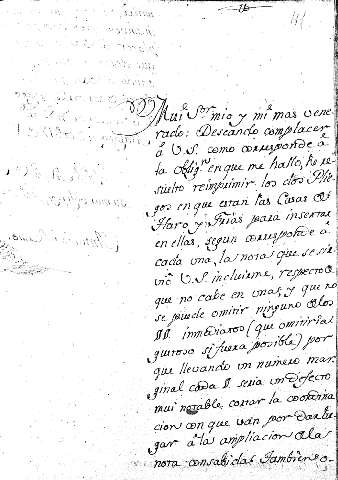 Mui Sor mio y mi mas vene
rado: Deseando complacer
â V.S. como corresponde â
la oblign en que me hallo, he re
suelto reimprimir los dos Plie
gos en que estan las Casas de
Haro y Frias para insertar
en ellas, segun corresponde â
cada una, las notas que se sir
viò V.S. incluirme, respecto â
que no cabe en unas, y que no
se puede omitir ninguno de los
§§ inmediatos (que omitirlas
gustoso si fuera posible) por
que llevando un numero mar
ginal cada § seria un defecto
mui notable, cortar la coordina
cion con que ván por dar lu
gar â la ampliacion de la
nota consabida. Tambien